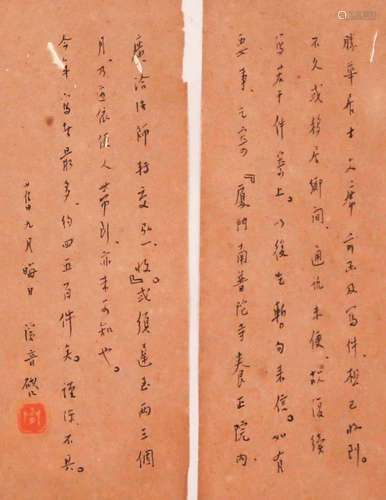 勝華居士文席前函及寫件想已收到。
不久或移居鄉間。通訊未便。故復續
寫若干件寄上。以後乞暫勿來信。如有
要事。乞寄『廈門南普陀寺養正院內
廣洽法師轉交弘一收。』或須遲至兩三個
月。乃返依他人帶到。亦未可知也。
今年寫字最多。約四五百件矣。謹復不具。
舊九月晦日 演音啓